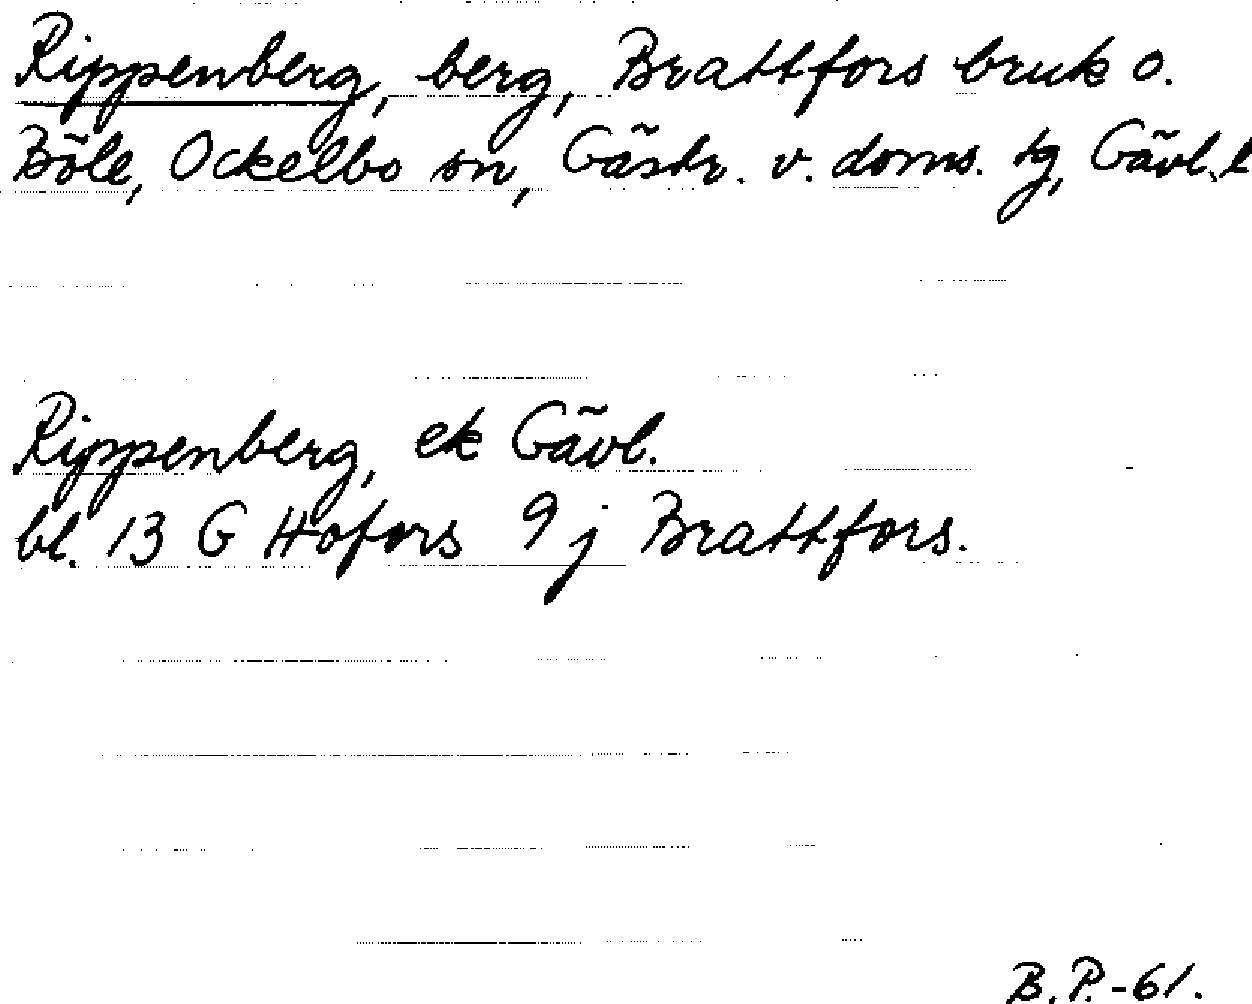 Rippenberg, berg, Brattfors bruk o.
Böle, Ockelbo sn, Gästr. v. doms. tg, Gävl. l
Rippenberg, ek Gävl.
bl. 13 G Hofors 9 j Brattfors.
B.P.-61.